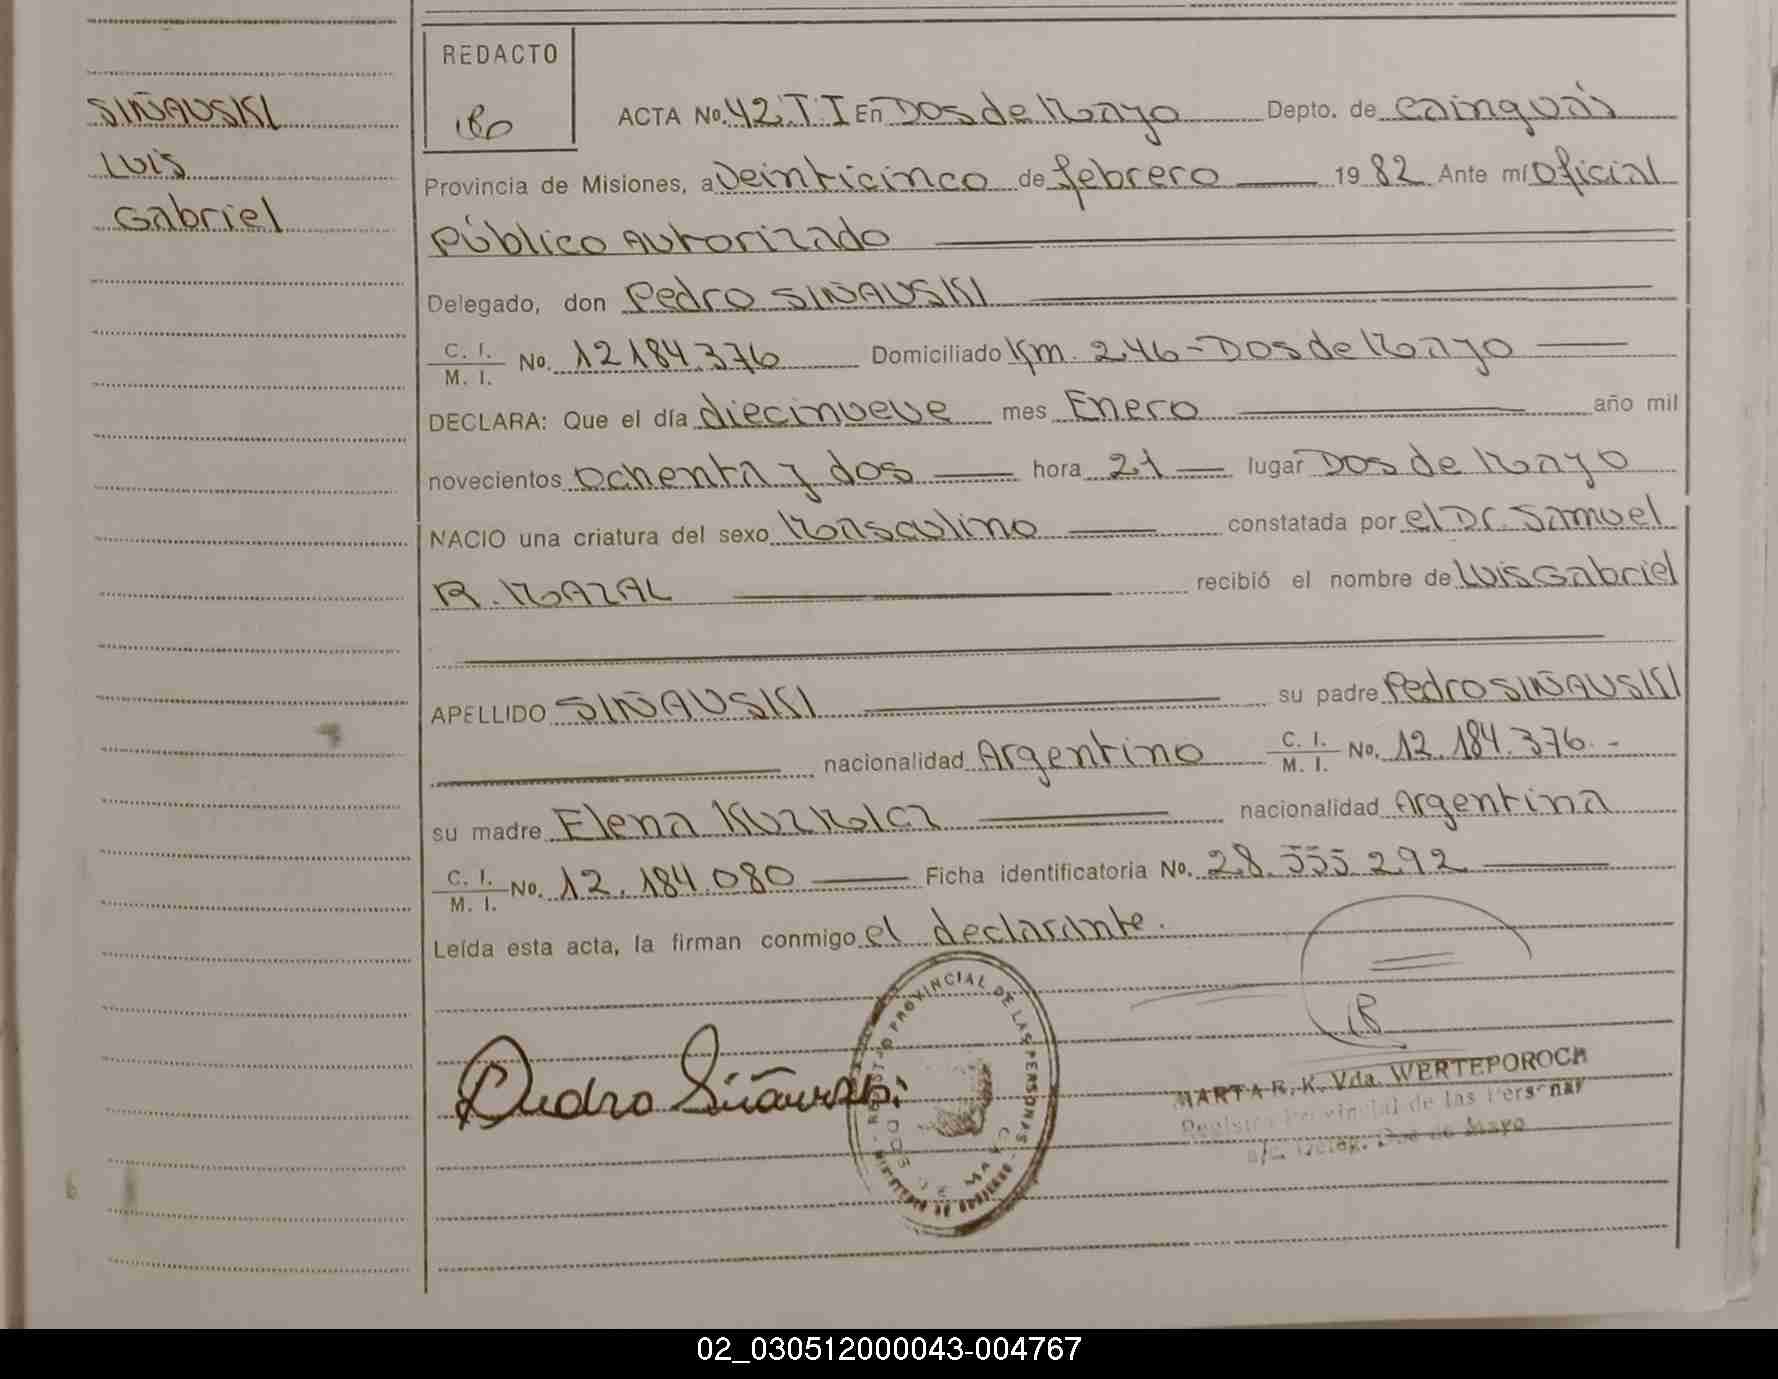 SIÑAUSKI
LUIS
Gabriel
REDACTO
ACTA No. 42.T.I En Dos de Mayo Depto. de Cainguás
Provincia de Misiones, a Veinticinco de febrero 1982 Ante mí Oficial
Público Autorizado
Delegado, don Pedro SIÑAUSKI
C. I.
M. I. No. 12.184.376 Domiciliado Km. 246-Dos de Mayo
DECLARA: Que el día diecinueve mes Enero año mil
novecientos ochenta y dos hora 21 lugar Dos de Mayo
NACIO una criatura del sexo Masculino constatada por el Dr. Samuel
R. MAZAL recibió el nombre de Luis Gabriel
APELLIDO SIÑAUSKI su padre Pedro SIÑAUSKI
nacionalidad Argentino C. I. M. I. No. 12.184.376.-
su madre Elena nacionalidad Argentina
C. I.
M. I. No. 12.184.080 Ficha identificatoria No. 28.555.292
Leída esta acta, la firman conmigo el declarante.
REGISTRO PROVINCIAL DE LAS PERSONAS
Pedro Siñauski
MARTA R. K. Vda. WERTEPOROCH
Registro Provincial de las Personas
a/c. Deleg. Dos de Mayo
02_030512000043-004767